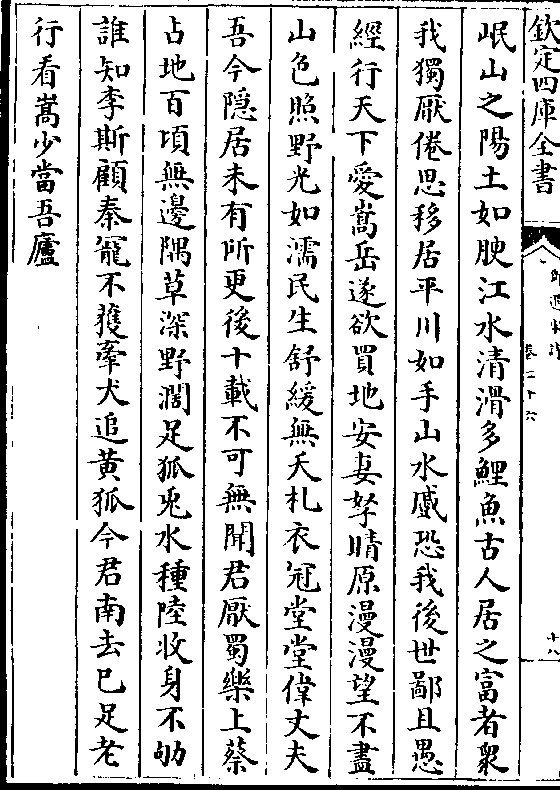 欽定四庫全書
岷山之陽土如腴江水清滑多鯉魚古人居之富者衆
我獨厭倦思移居平川如手山水蹙恐我後世鄙且愚
經行天下愛嵩岳遂欲買地安妻孥晴原漫漫望不盡
山色照野光如濡民生舒緩無夭札衣冠堂堂偉丈夫
吾今隱居未有所更後十載不可無聞君厭蜀樂上蔡
占地百頃無邊隅草深野濶足狐兎水種陸收身不劬
誰知李斯顧秦寵不獲牽犬追黄狐今君南去已足老
行看嵩少當吾廬